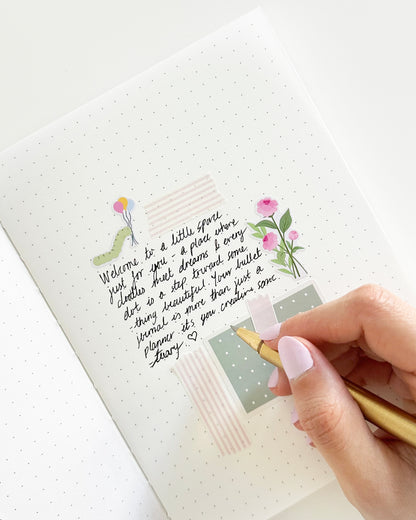 Welcome to a little space
just for you - a place where
doodles meet dreams & every
dot is a step toward some
-thing beautiful. Your bullet
journal is more than just a
planner it's you creating some